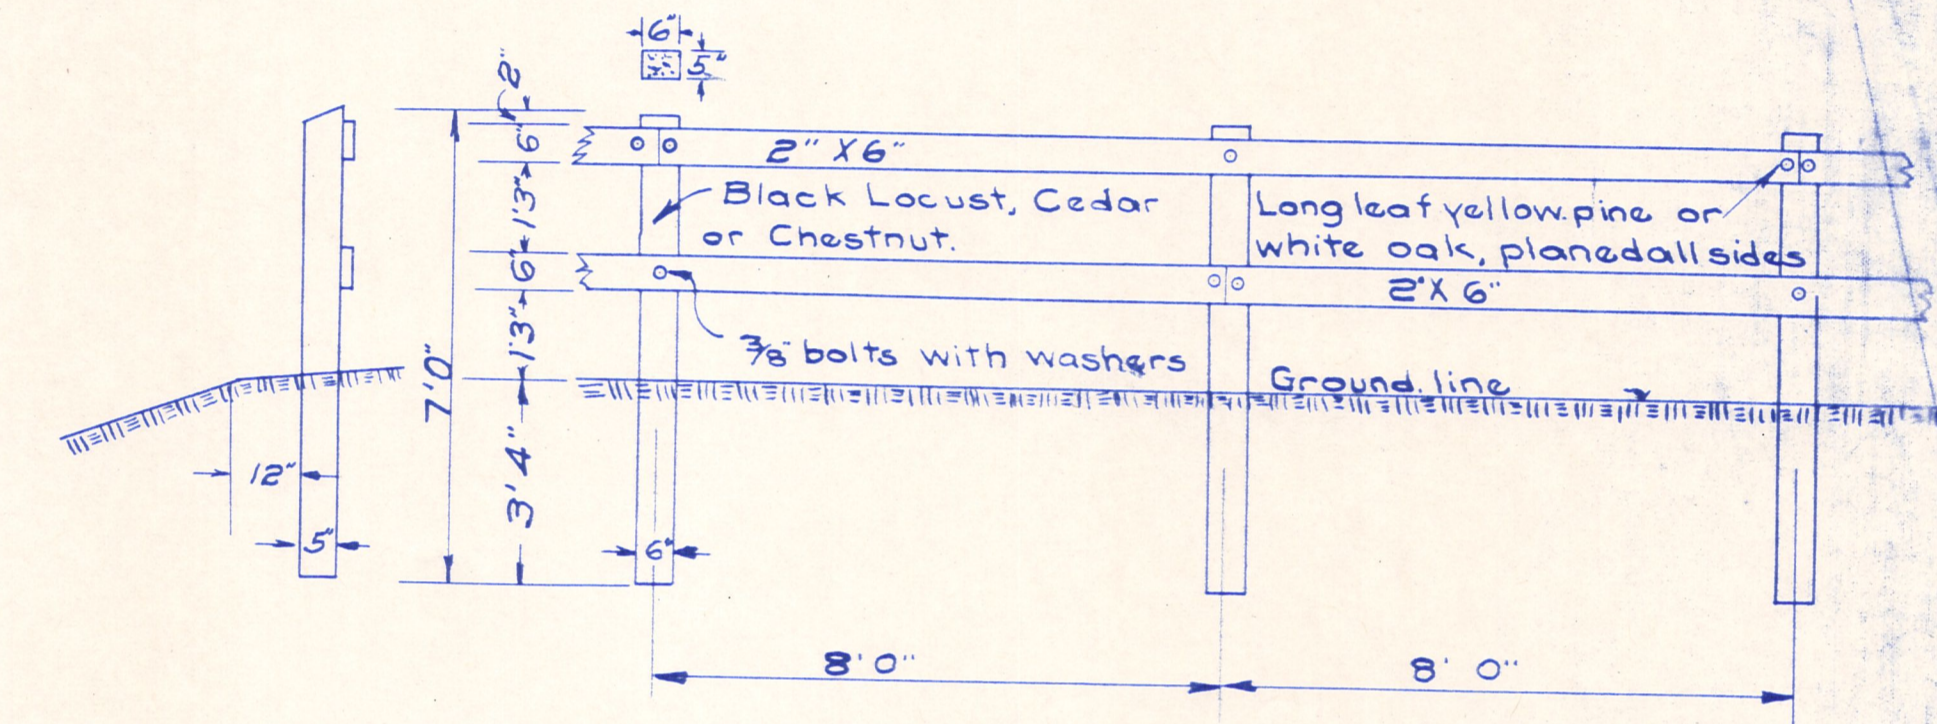 6"
5"
2"
6"
1'3"
6"
1'3"
7'0"
3'4"
12"
5"
6"
2" X 6"
Black Locust, Cedar
or Chestnut.
Long leaf yellow pine or
white oak, planed all sides
2" X 6"
3/8" bolts with washers
Ground line
8' 0"
8' 0"